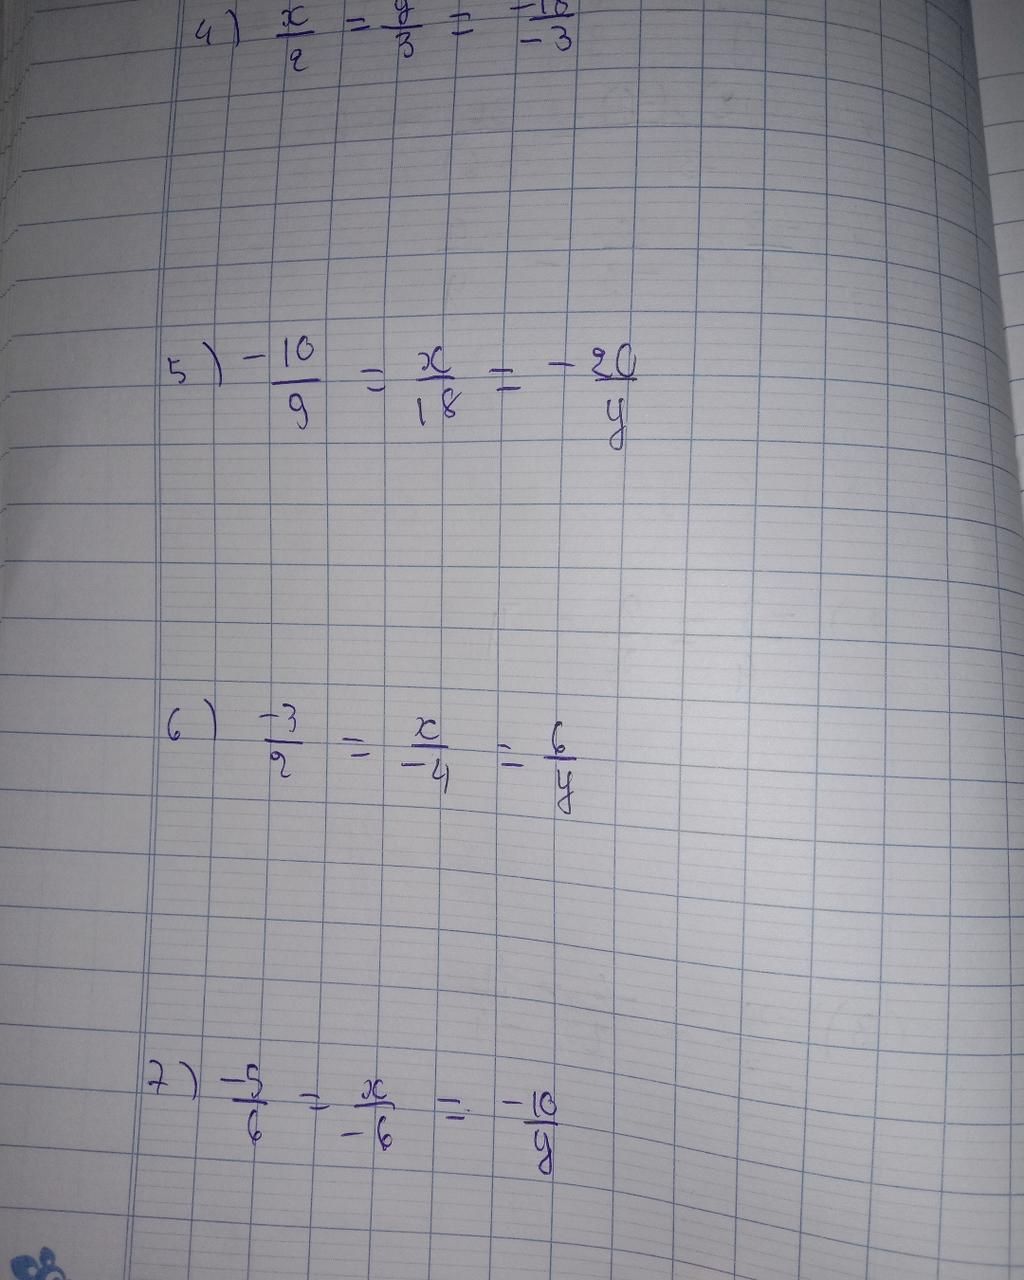 4) x/2 = y/3 = -18/-3
5) -10/9 = x/18 = -20/y
6) -3/2 = x/-4 = 6/y
7) -5/6 = x/-6 = -10/y